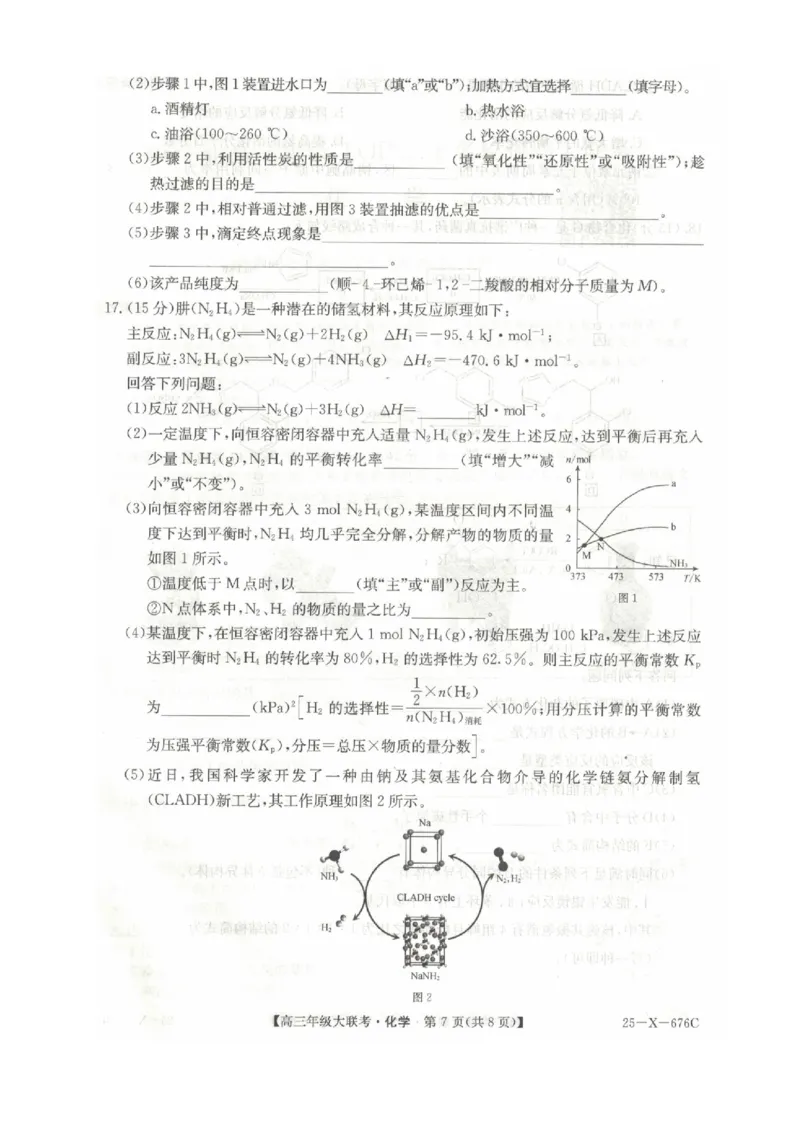 (2)步骤1中,图1装置进水口为______(填“a”或“b”);加热方式宜选择______(填字母)。
a.酒精灯 b.热水浴
c.油浴(100~260 ℃) d.沙浴(350~600 ℃)
(3)步骤2中,利用活性炭的性质是______(填“氧化性”“还原性”或“吸附性”);趁
热过滤的目的是______。
(4)步骤2中,相对普通过滤,用图3装置抽滤的优点是______。
(5)步骤3中,滴定终点现象是______
______。
(6)该产品纯度为______(顺-4-环己烯-1,2-二羧酸的相对分子质量为M)。
17.(15分)肼(N₂H₄)是一种潜在的储氢材料,其反应原理如下:
主反应:N₂H₄(g)⇌N₂(g)+2H₂(g) ΔH₁=-95.4 kJ·mol⁻¹;
副反应:3N₂H₄(g)⇌N₂(g)+4NH₃(g) ΔH₂=-470.6 kJ·mol⁻¹。
回答下列问题:
(1)反应2NH₃(g)⇌N₂(g)+3H₂(g) ΔH=______kJ·mol⁻¹。
(2)一定温度下,向恒容密闭容器中充入适量N₂H₄(g),发生上述反应,达到平衡后再充入
少量N₂H₄(g),N₂H₄的平衡转化率______(填“增大”“减
小”或“不变”)。
(3)向恒容密闭容器中充入3 mol N₂H₄(g),某温度区间内不同温
度下达到平衡时,N₂H₄均几乎完全分解,分解产物的物质的量
如图1所示。
①温度低于M点时,以______(填“主”或“副”)反应为主。
②N点体系中,N₂、H₂的物质的量之比为______。
n/mol
6
4
2
0
a
b
M
N
NH₃
373 473 573 T/K
图1
(4)某温度下,在恒容密闭容器中充入1 mol N₂H₄(g),初始压强为100 kPa,发生上述反应
达到平衡时N₂H₄的转化率为80%,H₂的选择性为62.5%。则主反应的平衡常数Kₚ
为______(kPa)²[H₂的选择性=(1/2×n(H₂))/(n(N₂H₄)消耗)×100%;用分压计算的平衡常数
为压强平衡常数(Kₚ),分压=总压×物质的量分数]。
(5)近日,我国科学家开发了一种由钠及其氨基化合物介导的化学链氨分解制氢
(CLADH)新工艺,其工作原理如图2所示。
Na
NH₃
N₂,H₂
CLADH cycle
H₂
NaNH₂
图2
【高三年级大联考·化学 第7页(共8页)】 25-X-676C